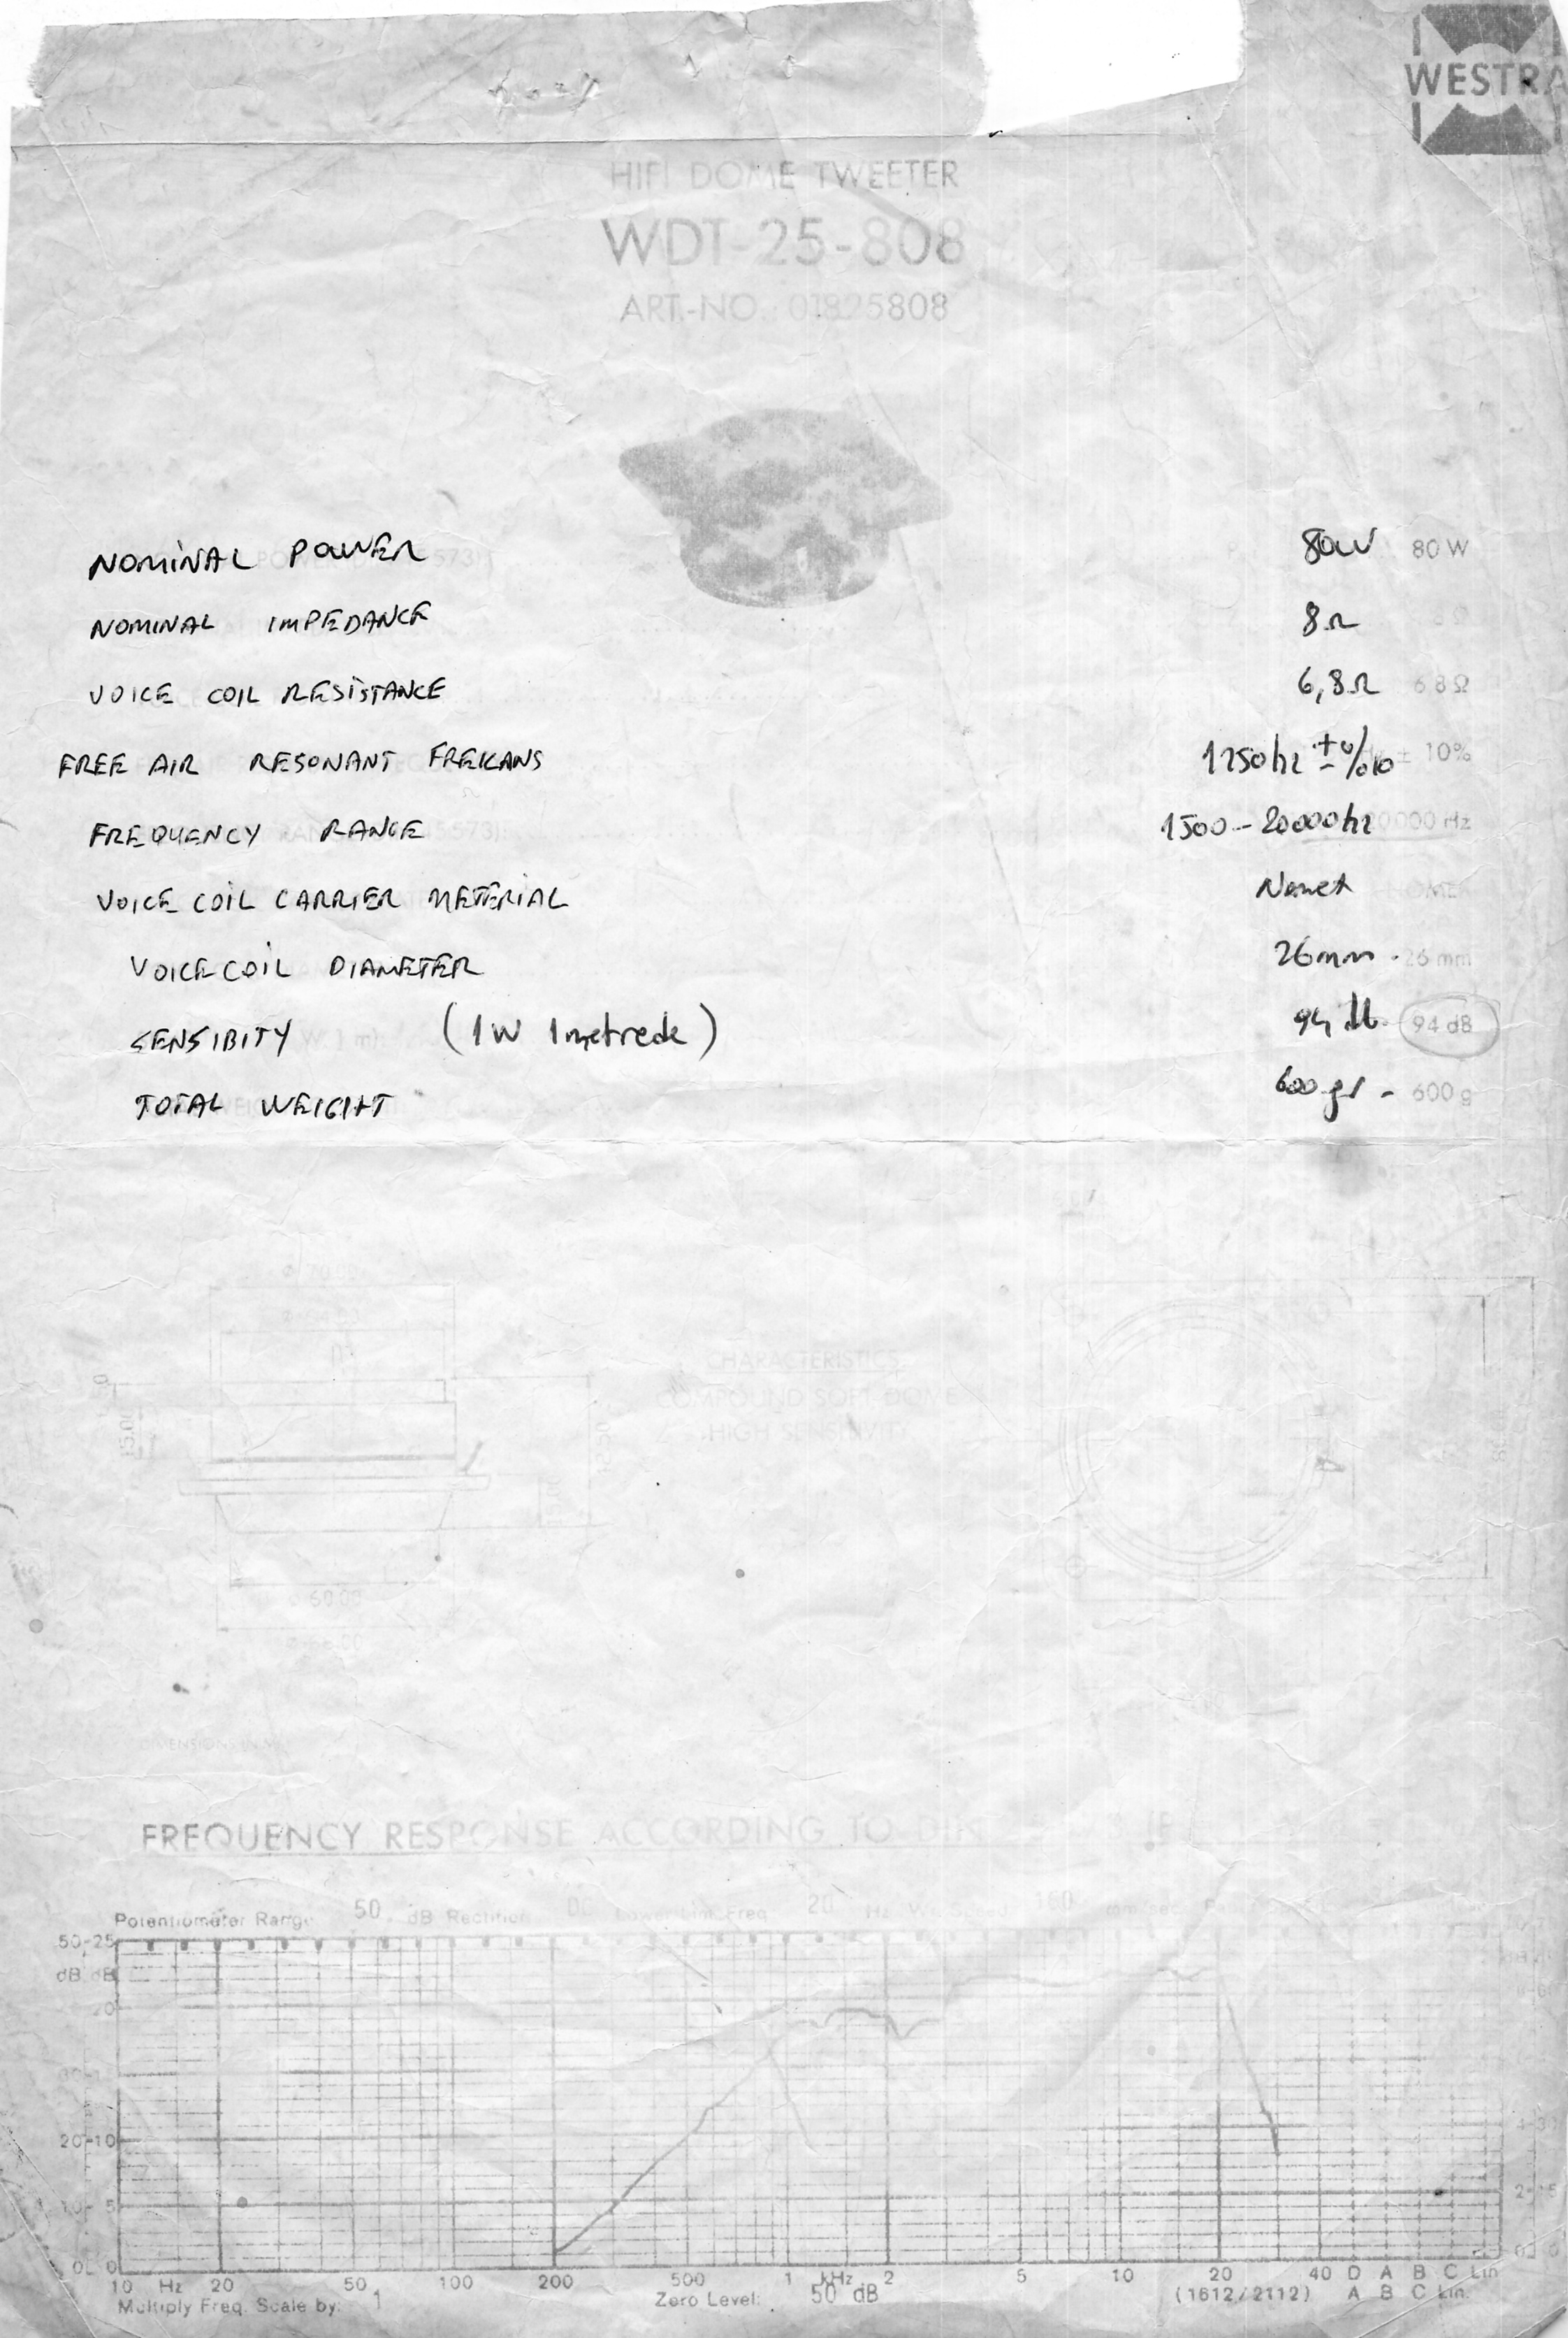 WESTRA
HIFI DOME TWEETER
WDT-25-808
ART.-NO. 01825808
NOMINAL POWER 80W 80 W
NOMINAL IMPEDANCE 8Ω 8 Ω
VOICE COIL RESISTANCE 6,8Ω 6,8 Ω
FREE AIR RESONANT FREKANS 1250hz ±%10 ± 10%
FREQUENCY RANGE 1500-20000hz 20000 Hz
VOICE COIL CARRIER METERIAL
VOICE COIL DIAMETER 26mm - 26 mm
SENSIBITY (1W 1metrede) 94 db - 94 dB
TOTAL WEIGHT 600 gr - 600 g
CHARACTERISTICS
COMPOUND SOFT DOME
HIGH SENSITIVITY
15.00
ø 60.00
DIMENSIONS IN
FREQUENCY RESPONSE ACCORDING TO DIN
Potentiometer Range 50 dB Rectifier Lower Lim. Freq. 20 Hz 160 mm/sec.
50-25
dB dB
20
20-10
10-5
0 0
10 Hz 20 50 100 200 500 1 kHz 2 5 10 20 40 D A B C Lin.
Multiply Freq. Scale by: 1 Zero Level: 50 dB (1612/2112) A B C Lin.